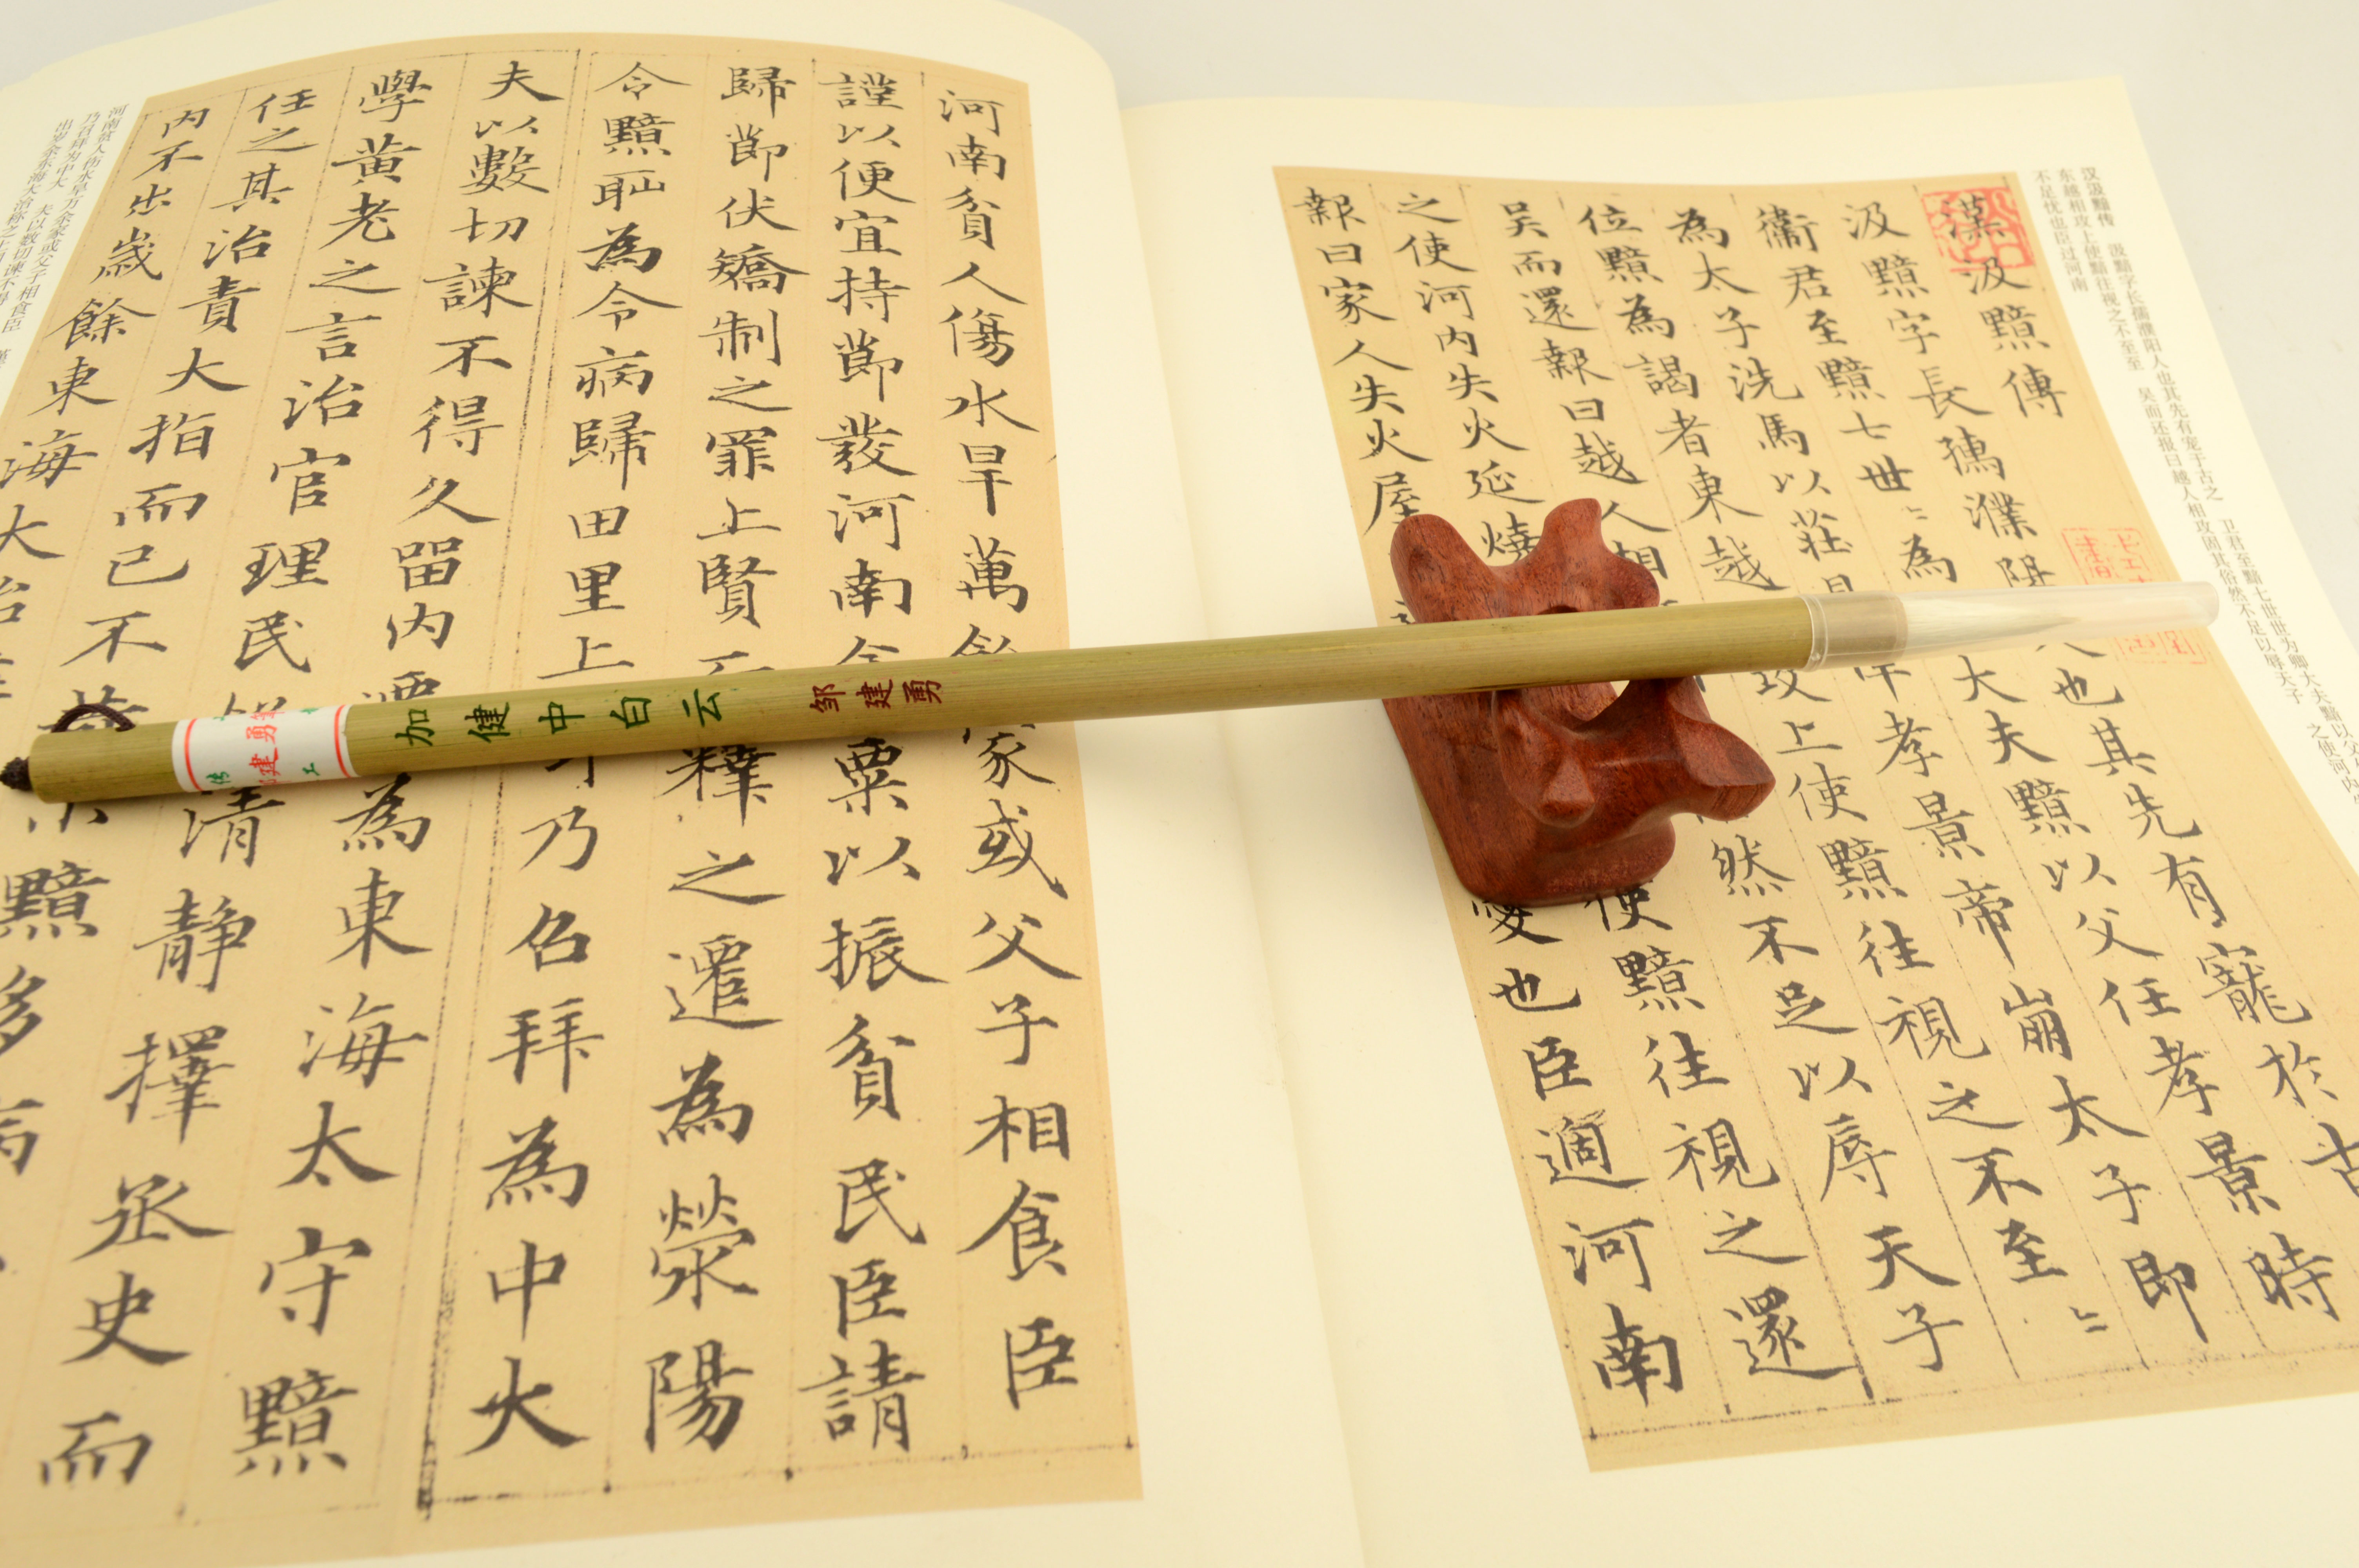 汉汲黯传 汲黯字长孺濮阳人也其先有宠于古之 卫君至黯七世世为卿大夫黯以父
东越相攻上使黯往视之不至至 吴而还报曰越人相攻固其俗然不足以辱天子 之使河内
不足忧也臣过河南
漢汲黯傳
汲黯字長孺濮陽人也其先有寵於古
衞君至黯七世〻為大夫黯以父任孝景時
為太子洗馬以莊見孝景帝崩太子即
位黯為謁者東越攻上使黯往視之不至〻
吴而還報曰越人相然不足以辱天子
之使河内失火延燒使黯往視之還
報曰家人失火屋憂也臣適河南
河南貧人傷水旱萬餘家或父子相食臣
謹以便宜持莭發河南倉粟以振貧民臣請
歸莭伏矯制之罪上賢而釋之遷為滎陽
令黯耻為令病歸田里上乃召拜為中大
夫以數切諫不得久留内遷為東海太守黯
學黄老之言治官理民好清静擇丞史而
任之其治責大指而已不苛黯多病
内不出歲餘東海大治
河南贫人伤水旱万余家或父子相食臣
乃召拜为中大 夫以数切谏不得
出岁余东海大治称之上闻
加健中白云 邹建勇